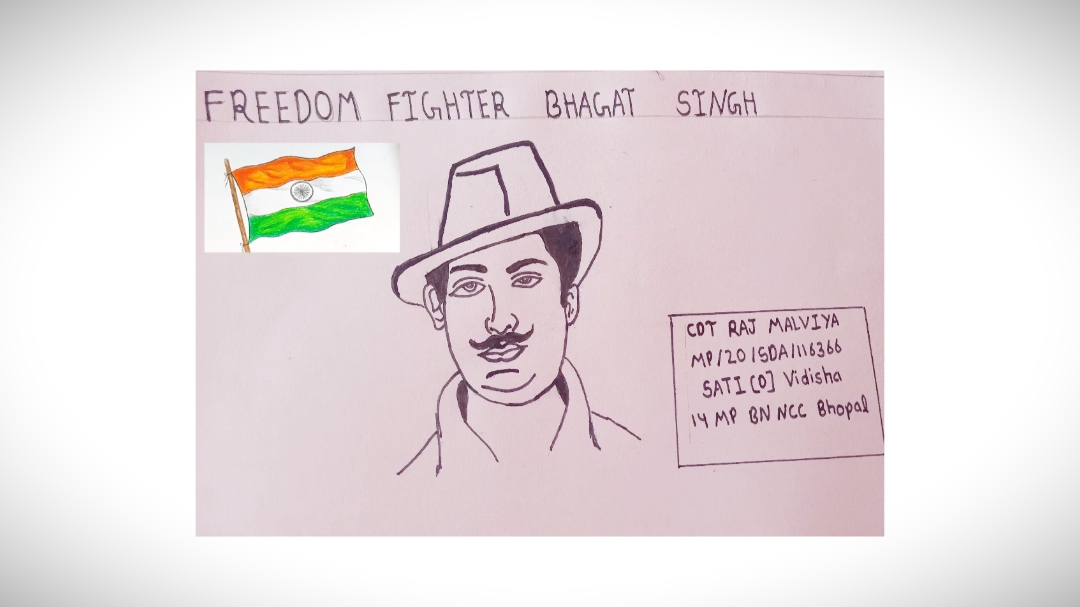 FREEDOM FIGHTER BHAGAT SINGH
CDT RAJ MALVIYA
MP/20/SDA/116366
SATI [D] Vidisha
14 MP BN NCC Bhopal